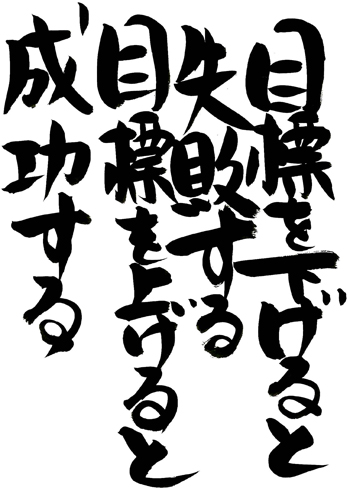 目標を下げると
失敗する
目標を上げると
成功する